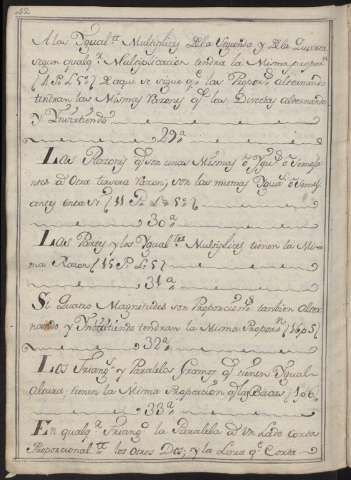 42
A los Ygual.tes Multiplices De la Segunda y De la Quarta
segun qualq.r Multiplicacion tendra la Misma propor.n
(11 P. L. 5.) De aqui se sigue q.e las Propor.s alternando
tendran las Mismas Razones q.e las Directas alternando
y Invirtiendo.
29.a
Las Razones q.e son unas Mismas ô Ygu.s ô Semejan
tes â Otra tercera Razon; son las mismas Yguas ô Semej
antes entre Si (11 P. L. 5.)
30.a
Las Partes y los Ygual.tes Multiplices tienen la Mis
ma Razon (15 P. L. 5)
31.a
Si Quatro Magnitudes son Proporcion.s tambien Alter
nando y Invirtiendo tendran la Misma Propor.n (16 P. 5)
32.a
Los Triang.s y Paralelogramos q.e tienen Ygual
Altura; tienen la Misma Proporcion q.e las Bases (1 P. 6.
33.a
En qualq.r Triang.o la Paralela â Un Lado corta
Proporcional.te los otros Dos; y la Linea q.e Corta